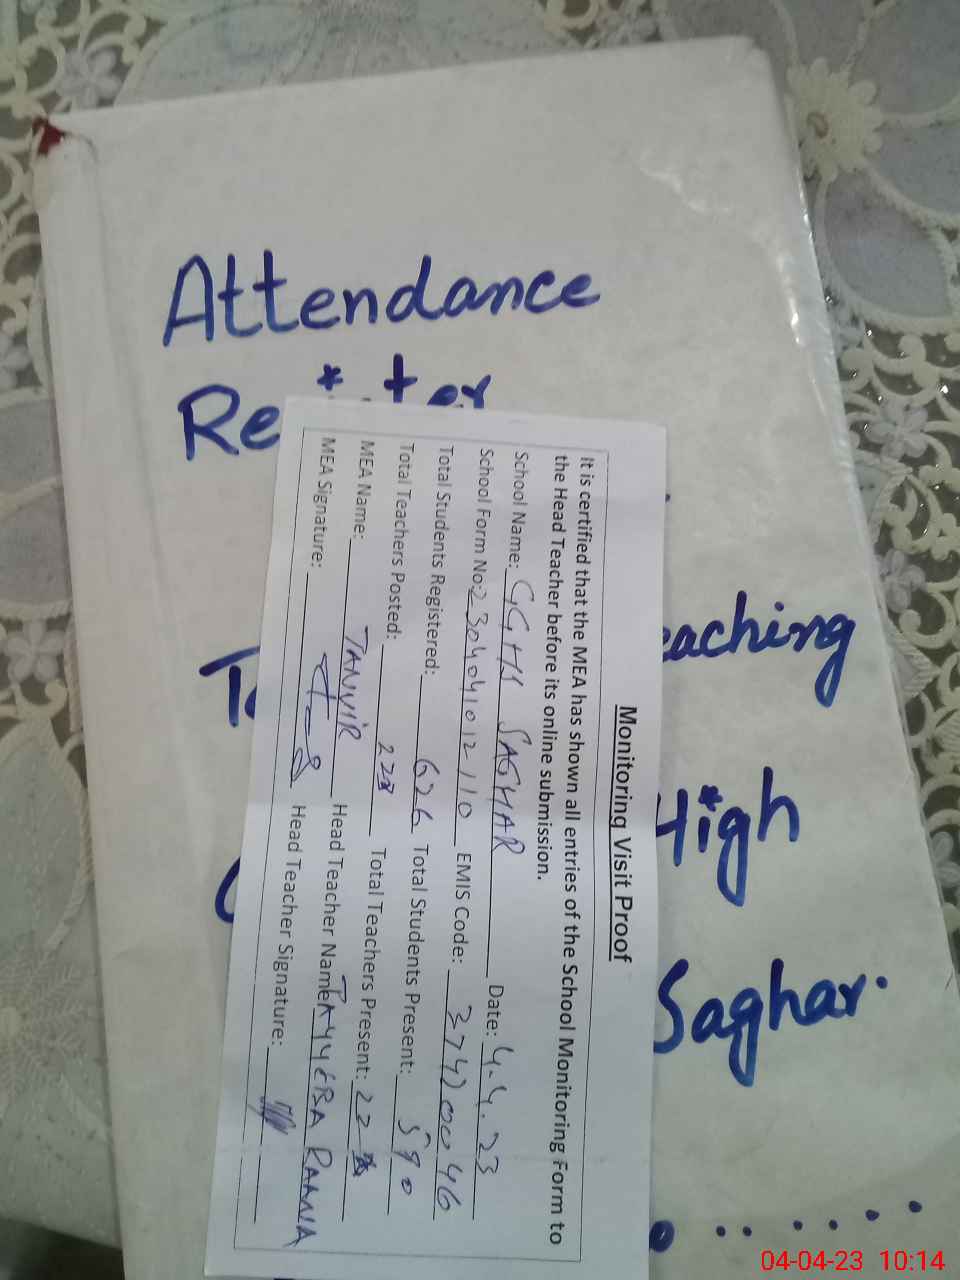 Attendance
Re
eaching
High
Saghar.
Monitoring Visit Proof
It is certified that the MEA has shown all entries of the School Monitoring Form to
the Head Teacher before its online submission.
School Name: GGHS SAGHAR Date: 4.4.23
School Form No: 2304041012110 EMIS Code: 37420046
Total Students Registered: 626 Total Students Present: 590
Total Teachers Posted: 22 Total Teachers Present: 22
MEA Name: TANVIR Head Teacher Name: TAYYEBA RAANA
MEA Signature: Head Teacher Signature:
04-04-23 10:14